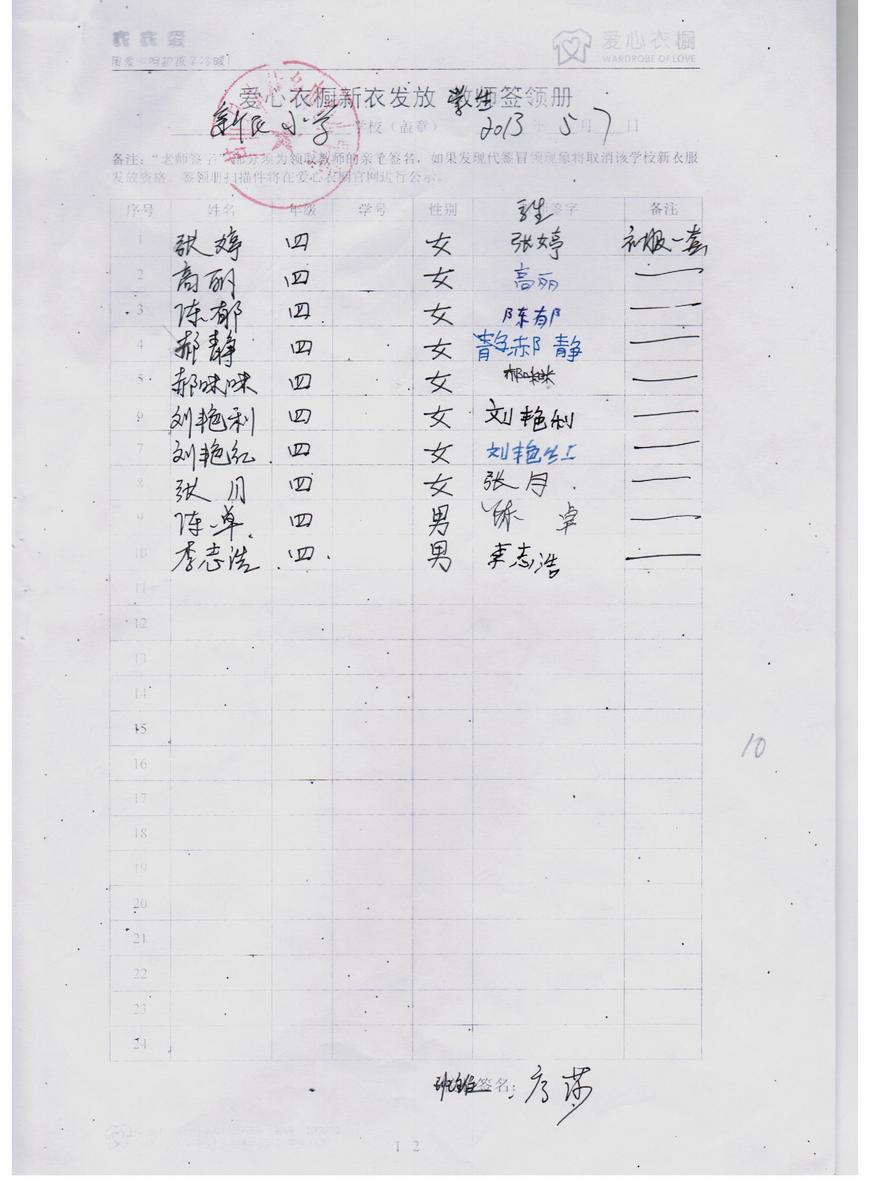 爱心衣橱
WARDROBE OF LOVE
爱心衣橱新衣发放 学生 教师签领册
新民小学 学校（盖章） 2013 年 5 月 7 日
备注：“老师签字”部分须为领取教师的亲笔签名，如果发现代签冒领现象将取消该学校新衣服
发放资格。签领册扫描件将在爱心衣橱官网进行公示。
序号 姓名 年级 学号 性别 签字 备注
1 张婷 四 女 张婷 衣服一套
2 高丽 四 女 高丽
3 陈郁 四 女 陈郁
4 郝静 四 女 郝静
5 郝咪咪 四 女 郝咪咪
6 刘艳利 四 女 刘艳利
7 刘艳红 四 女 刘艳红
8 张月 四 女 张月
9 陈卓 四 男 陈卓
10 李志浩 四 男 李志浩
11
12
13
14
15
16
17
18
19
20
21
22
23
24
10
班主任签名：
12